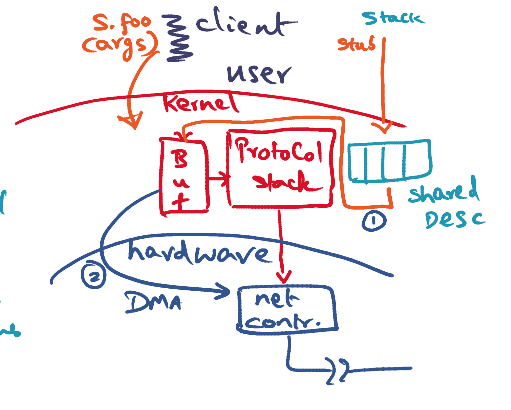 S.foo
(args)
client
Stack
stub
user
Kernel
B
u
f
Protocol
stack
shared
Desc
1
hardware
2
DMA
net
contr.